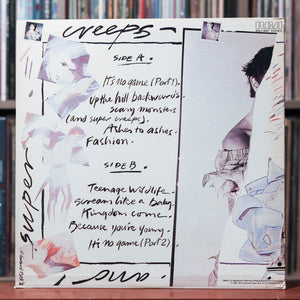 creeps
RCA
SIDE A.
It's no game (Part 1).
up the hill backwards.
scary monsters
(and super creeps).
Ashes to ashes.
Fashion.
SIDE B.
Teenage Wildlife.
scream like a baby.
Kingdom come.
Because you're young.
It's no game (Part 2)
super
and